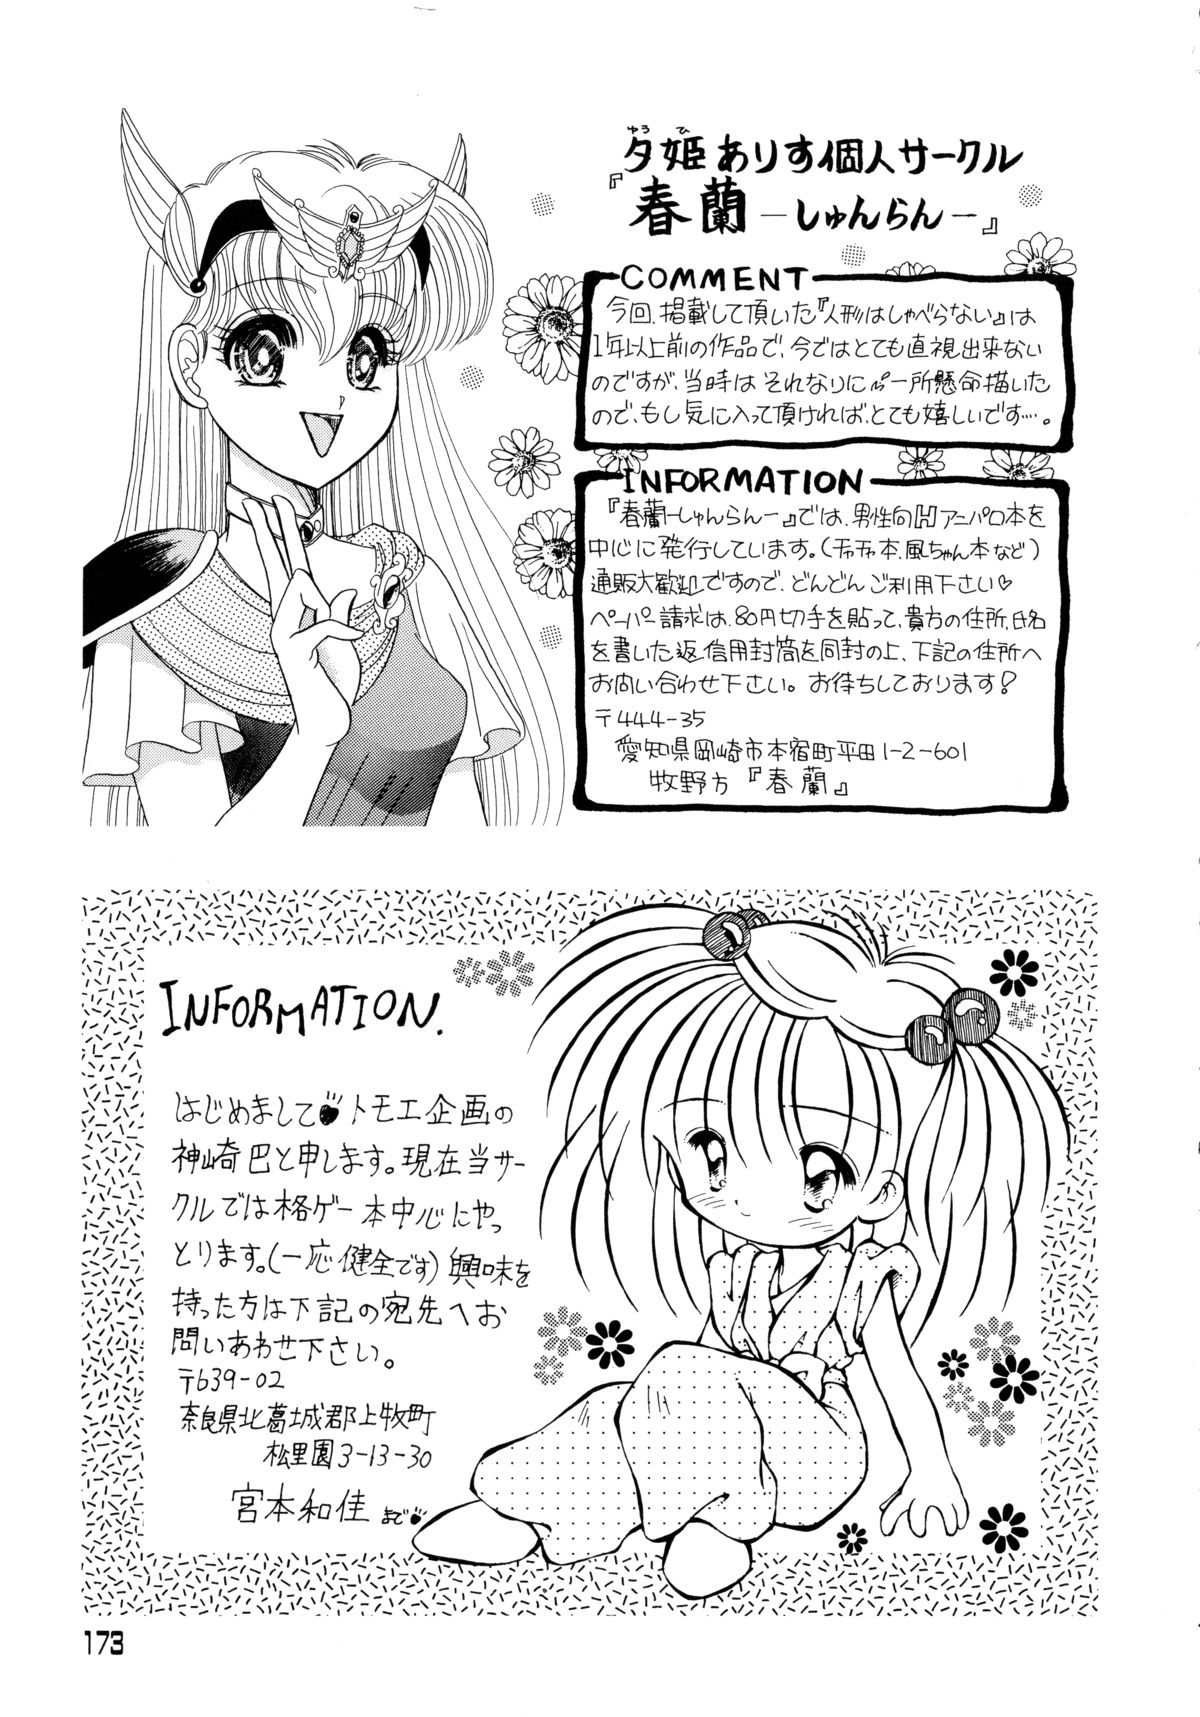 ゆうひ
夕姫ありす個人サークル
『春蘭－しゅんらん－』
COMMENT
今回、掲載して頂いた『人形はしゃべらない』は
1年以上前の作品で、今ではとても直視出来ない
のですが、当時はそれなりに一所懸命描いた
ので、もし気に入って頂ければ、とても嬉しいです…。
INFORMATION
『春蘭－しゅんらん－』では、男性向Hアニパロ本を
中心に発行しています。(チャチャ本、風ちゃん本など)
通販大歓迎ですので、どんどんご利用下さい♡
ペーパー請求は、80円切手を貼って、貴方の住所、氏名
を書いた返信用封筒を同封の上、下記の住所へ
お向い合わせ下さい。お待ちしております!
〒444-35
愛知県岡崎市本宿町平田1-2-601
牧野方『春蘭』
INFORMATION.
はじめまして トモエ企画の
神崎巴と申します。現在当サー
クルでは格ゲー本中心にやっ
とります。(一応健全です)興味を
持った方は下記の宛先へお
問いあわせ下さい。
〒639-02
奈良県北葛城郡上牧町
松里園3-13-30
宮本和佳 まで
173